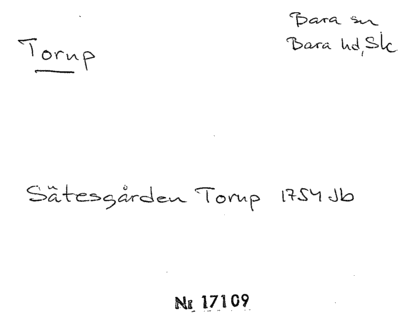 Torup
Bara sn
Bara hd, Sk
Sätesgården Torup 1754 Jb
Nr 17109